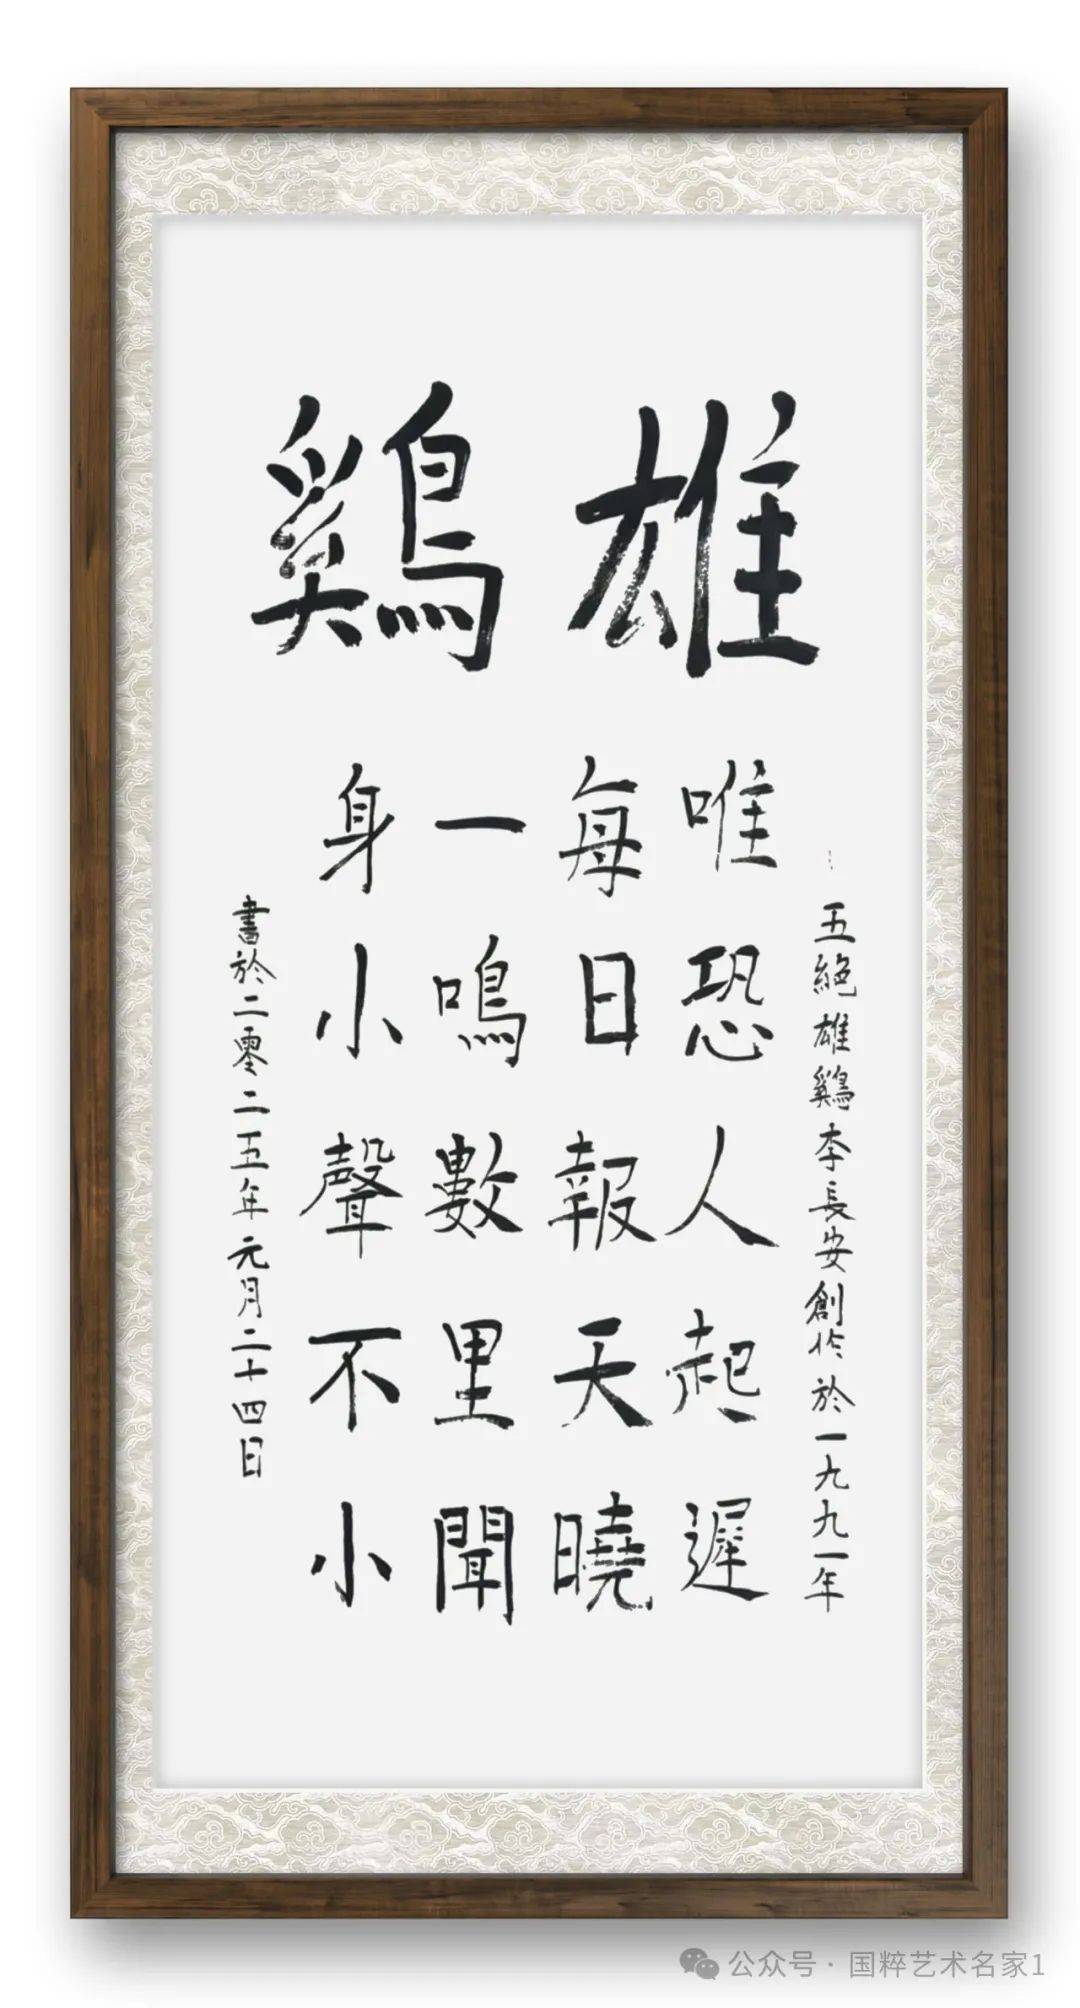 雄鷄
五絕雄鷄李長安創作於一九九一年
唯恐人起遲
每日報天曉
一鳴數里聞
身小聲不小
書於二零二五年元月二十四日
公众号 · 国粹艺术名家1